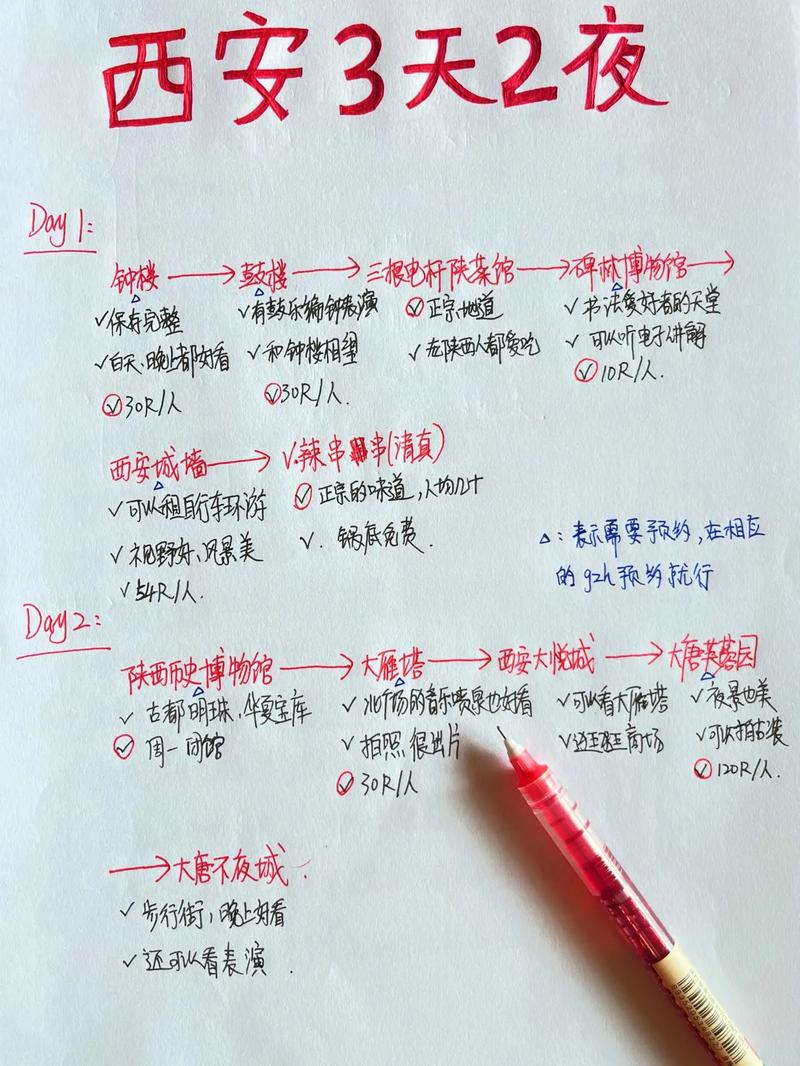 西安3天2夜
Day 1:
钟楼 → 鼓楼 → 三根电杆陕菜馆 → 碑林博物馆 →
✓保存完整 ✓有鼓乐编钟表演 ✓正宗、地道 ✓书法爱好者的天堂
✓白天、晚上都好看 ✓和钟楼相望 ✓老陕西人都爱吃 ✓可以听电子讲解
✓30R/人 ✓30R/人. ✓10R/人.
西安城墙 → V.辣串串(清真)
✓可以租自行车环游 ✓正宗的味道,人均几十
✓视野好、风景美 ✓. 锅底免费.
✓54R/人.
△:表示需要预约,在相应
的gzh预约就行
Day 2:
陕西历史博物馆 → 大雁塔 → 西安大悦城 → 大唐芙蓉园
✓古都明珠,华夏宝库 ✓北广场的音乐喷泉也好看 ✓可以看大雁塔 ✓夜景也美
✓周一闭馆 ✓拍照很出片 ✓逛逛商场 ✓可以拍古装
✓30R/人 ✓120R/人.
→ 大唐不夜城.
✓步行街,晚上好看
✓还可以看表演.